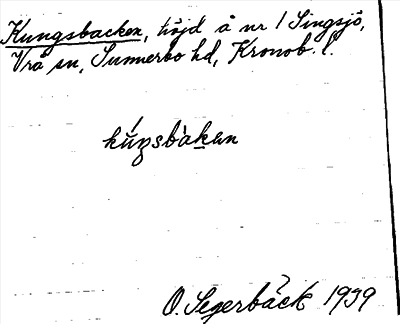 Kungsbacken, höjd å nr 1 Singsjö,
Vrå sn, Sunnerbo hd, Kronob. l.
kúŋsbàkən
O. Segerbäck 1939